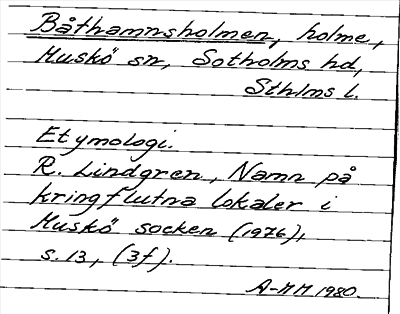 Båthamnsholmen, holme,
Muskö sn, Sotholms hd,
Sthlms l.
Etymologi.
R. Lindgren, Namn på
kringflutna lokaler i
Muskö socken (1976),
s. 13, (3f).
A-MM 1980.